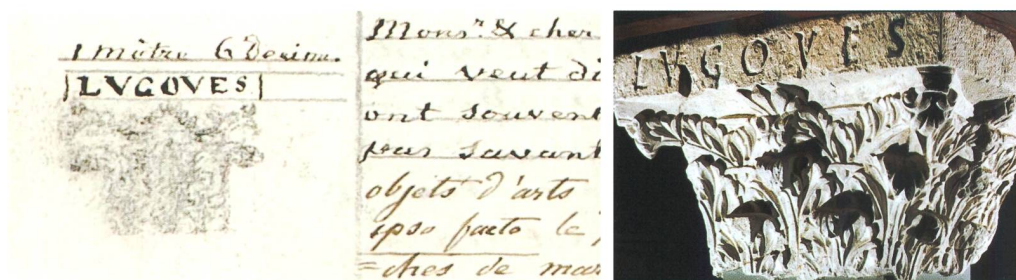 1 mètre 6 Decime.
LVGOVES
Mons.r & cher
qui veut di
ont souvent
par savant
objets d'arts
ipso facto le
=ches de mar
LVGOVES